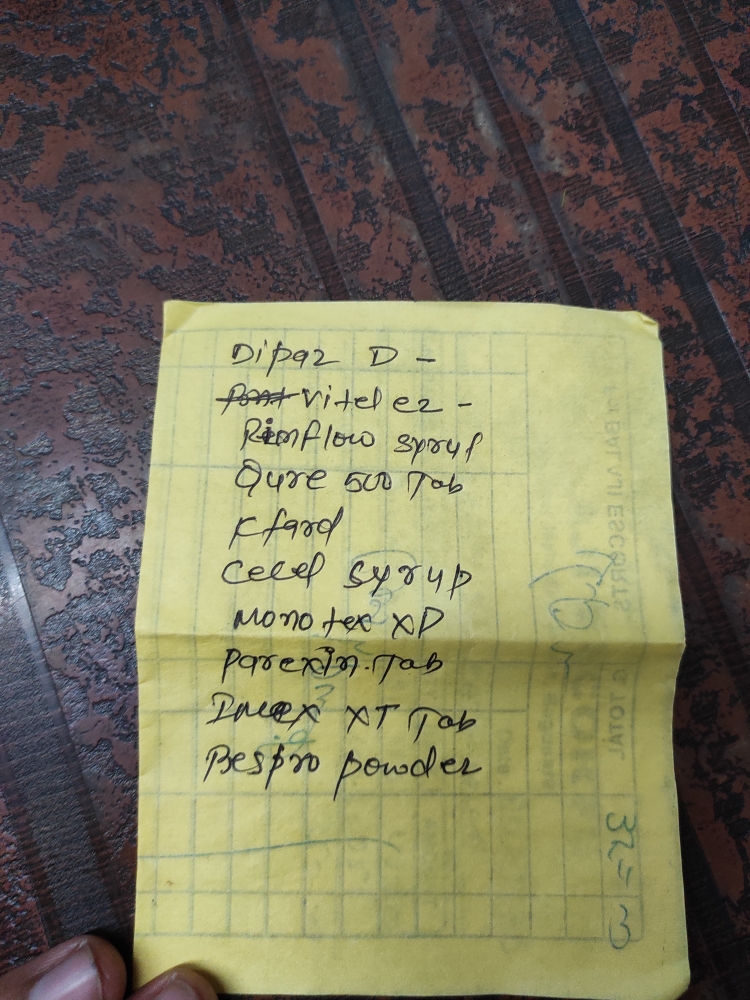 Dipaz D -
Vitelez -
Rimflow syrup
Qure 500 Tab
Kfard
Cecel syrup
Monotex XP
Parexin. Tab
Imex XT Tab
Bespro powder
BALAJI ESCORTS
TOTAL